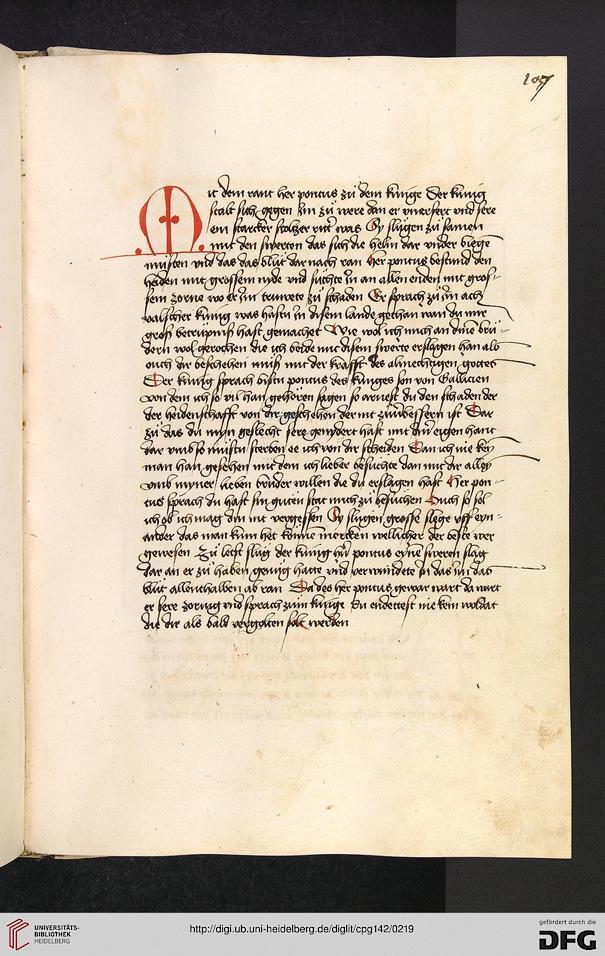 107
Mit dem rant her pontus zü dem künige Der künig
stalt sich gegen im zü were dan er vnerfert vnd sere
ein starcker stoltzer ritter was Sy slügen zü samen
mit den swerten das sich die helm dar vnder biege
müsten vnd das das blüt dar nach ran Her pontus bestund den
heiden mit grossem nyde vnd süchte in an allen enden mit gros-
sem zorne wo er im truwete zü schaden Er sprach zü im ach
valscher künig was hastu in disem lande gethan wan du mir
groß betrüpniß hast gemachet Wie wol ich mich an dine brü-
dern wol gerochen die ich beide mit disem swerte erslagen han als
ouch dir beschehen müß mit der krafft des almechtigen gottes
Der künig sprach bistu pontus des küniges son von Gallicien
von dem ich so vil han gehören sagen so arnest du den schaden der
der heidenschafft von dir geschehen der nit zü bessern ist Dar
zü das du myn geslecht sere gemydert hast mit diner eigen hant
dar vmb so müstu sterben ee ich von dir scheiden Dan ich nie key
man han gesehen mit dem ich lieber besuchte dan mit dir alley
vmb myner lieben brüder willen die du erslagen hast Her pon-
tus sprach du hast sin guten stat mich zü besuchen Ouch so sol
ich ob ich mag din nit vergessen Sy slügen grosse slege vff eyn-
ander das man kum het konne mercken wellicher der beste wer
gewesen Zü letst slüg der künig hern pontus eyne sweren slag
dar an er zü haben genüg hatte vnd verwundete in das im das
blüt allenthalben ab ran Da des her pontus gewar wart da wart
er sere zornig vnd sprach zum künige Du endettest nie kein woldat
die dir als bald vergolten sol werden
UNIVERSITÄTS-
BIBLIOTHEK
HEIDELBERG
http://digi.ub.uni-heidelberg.de/diglit/cpg142/0219
gefördert durch die
DFG